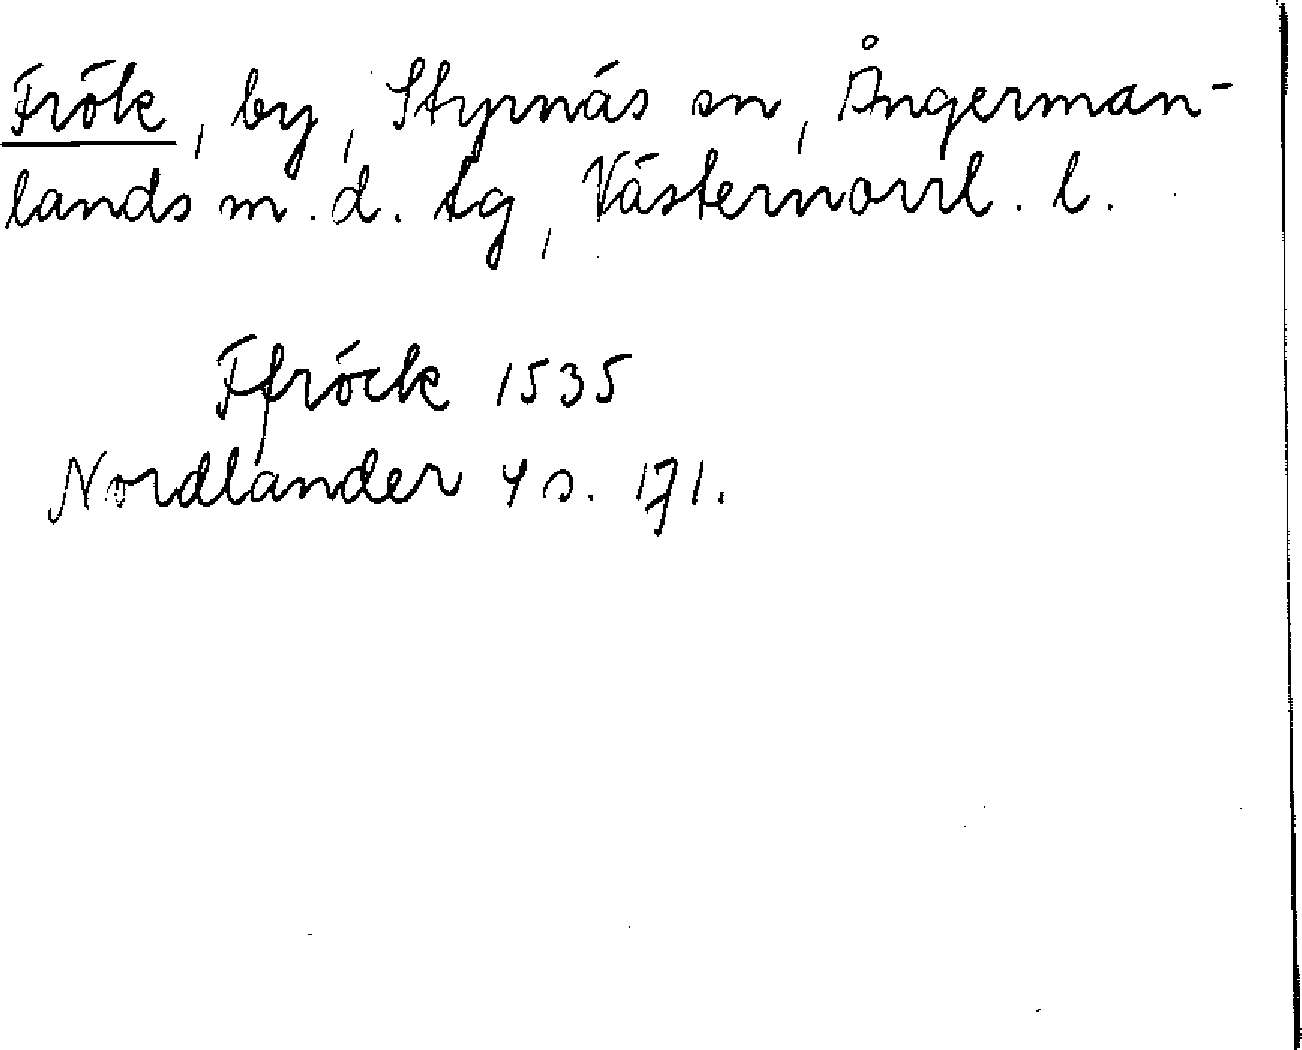 Frök, by, Styrnäs sn, Ångerman-
lands m. d. tg, Västernorrl. l.
Ffröck 1535
Nordlander 4 s. 171.